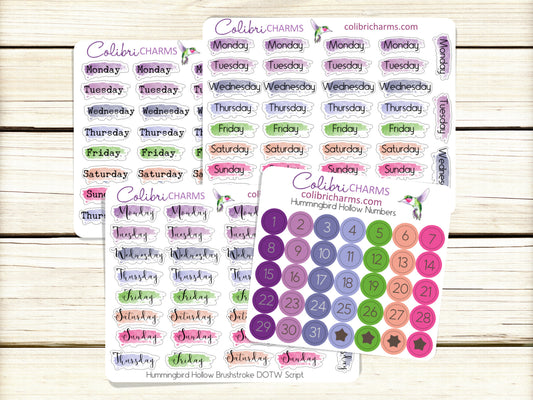 ColibriCHARMS
Monday Monday
Tuesday Tuesday
Wednesday
Thursday Thursday
Friday Friday
Saturday Saturday
Sunday
Thursday
ColibriCHARMS colibricharms.com
Monday Monday Monday Monday Monday
Tuesday Tuesday Tuesday Tuesday
Wednesday Wednesday Wednesday Wednesday
Thursday Thursday Thursday Thursday Tuesday
Friday Friday Friday Friday
Saturday Saturday Saturday Saturday
Sunday Sunday Sunday Sunday
Monday Monday
Tuesday Tuesday
Wednesday Wednesday
Thursday Thursday
Friday Friday
Saturday Saturday
Sunday Sunday
Thursday Friday Saturday Sunday
Hummingbird Hollow Brushstroke DOTW Script
ColibriCHARMS
colibricharms.com
Hummingbird Hollow Numbers
1 2 3 4 5 6 7
8 9 10 11 12 13 14
15 16 17 18 19 20 21
22 23 24 25 26 27 28
29 30 31